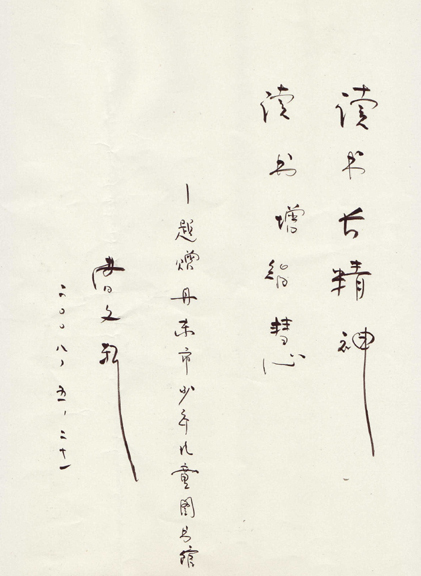 读书长精神
读书增智慧
—题赠丹东市少年儿童图书馆
曹文轩
二〇〇八、五、二十一